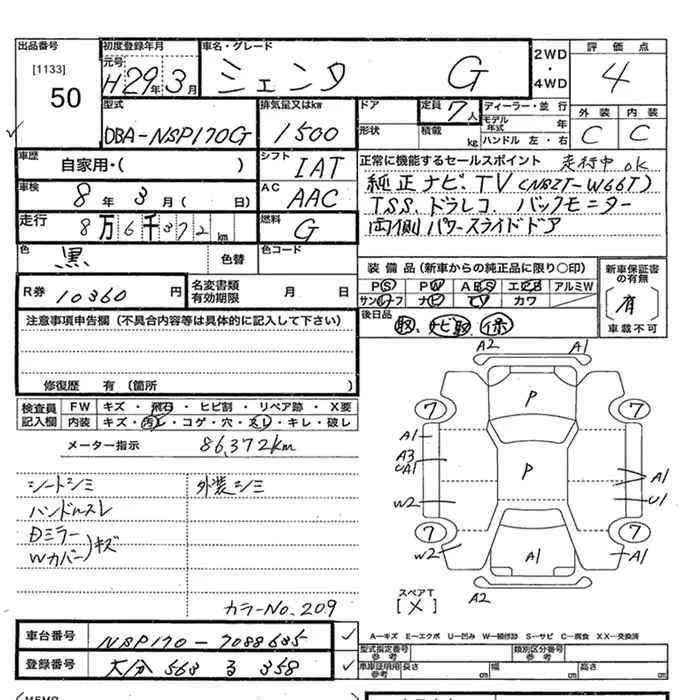 出品番号
[1133]
50
初度登録年月
元号
H 29年 3月
車名・グレード
シエンタ G
2WD
・
4WD
評価点
4
型式
DBA-NSP170G
排気量又はkw
1500
ドア
形状
定員 7人
積載 kg
ディーラー・並行
モデル年式 年
ハンドル 左・右
外装 内装
C C
車歴
自家用・( )
シフト
IAT
正常に機能するセールスポイント 走行中ok
純正ナビ、TV (NSZT-W66T)
TSS、ドラレコ、バックモニター
両側パワースライドドア
車検
8年 3月( 日)
AC
AAC
走行
8万6千372km
燃料
G
色
黒
色替
色コード
装備品 (新車からの純正品に限り○印)
PS PW ABS エアB アルミW
サンルーフ ナビ TV カワ
新車保証書の有無
有
車載不可
R券 10360円
名変書類有効期限 月 日
後日品
取、ナビ取、保
注意事項申告欄 (不具合内容等は具体的に記入して下さい)
修復歴 有 (箇所 )
検査員記入欄
FW キズ・飛石・ヒビ割・リペア跡・X要
内装 キズ・汚レ・コゲ・穴・スレ・キレ・破レ
メーター指示 86,372km
シートシミ
ハンドルスレ
Dミラー
Wカバー)キズ
外装シミ
カラーNo. 209
A2 A1
P
7 7
A1
A3
UA1
P
A1
U1
W2
7 7
W2 A1 A1
スペアT
[X]
A2
車台番号 NSP170-7088635
登録番号 大分 563 る 358
A―キズ E―エクボ U―凹み W―補修跡 S―サビ C―腐食 XX―交換済
型式指定番号
参考
類別区分番号
参考
車庫証明用
参考
長さ cm 幅 cm 高さ cm
(MEMO